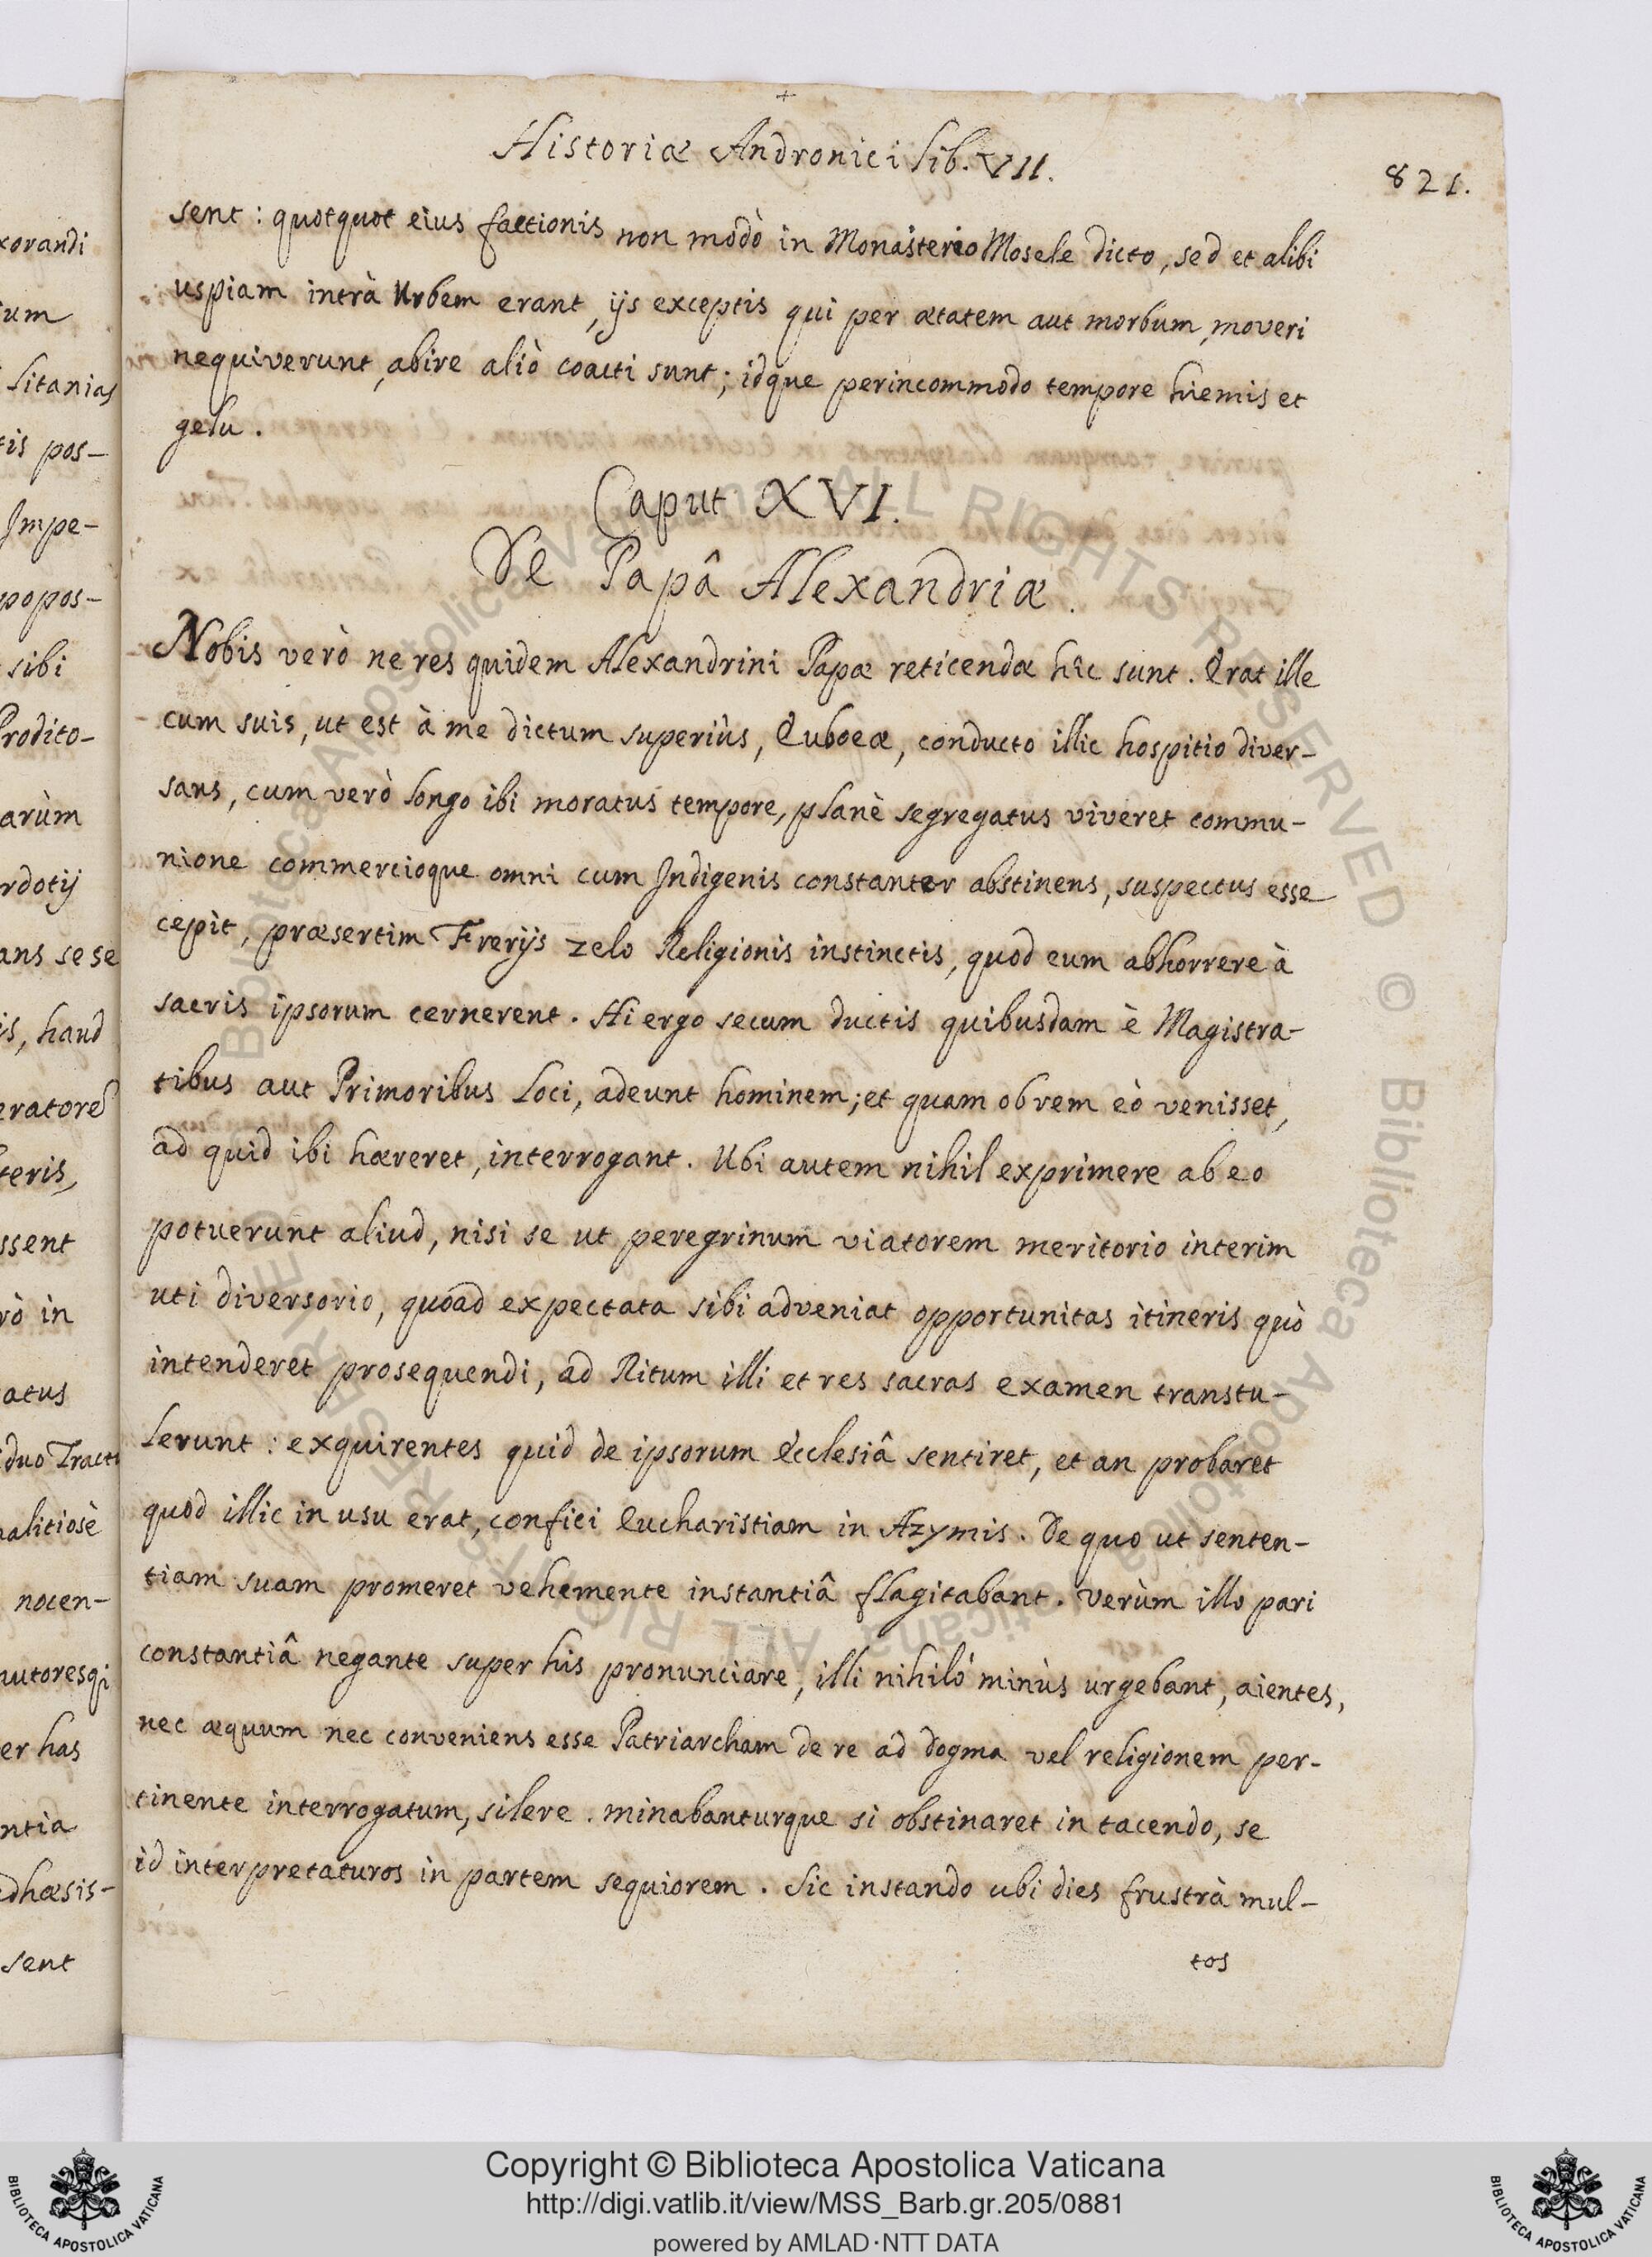 Historiæ Andronici Lib. VII.
821.
sent: quotquot eius factionis non modò in Monasterio Mosele dicto, sed et alibi
uspiam intrà Urbem erant, ijs exceptis qui per ætatem aut morbum, moveri
nequiverunt, abire aliò coacti sunt; idque perincommodo tempore hiemis et
gelu.
Caput XVI.
De Papâ Alexandriæ.
Nobis verò ne res quidem Alexandrini Papæ reticendæ hîc sunt. Erat ille
cum suis, ut est à me dictum superiùs, Euboeæ, conducto illic hospitio diver-
sans, cum verò longo ibi moratus tempore, planè segregatus viveret commu-
nione commercioque omni cum Indigenis constanter abstinens, suspectus esse
cepit, præsertim Frerijs zelo Religionis instinctis, quod eum abhorrere à
sacris ipsorum cernerent. Hi ergo secum ductis quibusdam è Magistra-
tibus aut Primoribus Loci, adeunt hominem; et quam ob rem eò venisset,
ad quid ibi hæreret, interrogant. Ubi autem nihil exprimere ab eo
potuerunt aliud, nisi se ut peregrinum viatorem meritorio interim
uti diversorio, quóad expectata sibi adveniat opportunitas itineris quò
intenderet prosequendi, ad Ritum illi et res sacras examen transtu-
lerunt: exquirentes quid de ipsorum Ecclesiâ sentiret, et an probaret
quod illic in usu erat, confici Eucharistiam in Azymis. De quo ut senten-
tiam suam promeret vehemente instantiâ flagitabant. Verùm illo pari
constantiâ negante super his pronunciare, illi nihiló minùs urgebant, aientes,
nec æquum nec conveniens esse Patriarcham de re ad dogma vel religionem per-
tinente interrogatum, silere. minabanturque si obstinaret in tacendo, se
id interpretaturos in partem sequiorem. Sic instando ubi dies frustrà mul-
tos
xorandi
um
Litanias
tis pos-
Impe-
popos-
sibi
Prodito-
arùm
rdotij
ans sese
is, haud
eratore
teris,
ssent
rò in
atus
duo Tract
alitiosè
nocen-
utoresqi
er has
ntia
dhæsis-
sent
Copyright © Biblioteca Apostolica Vaticana
http://digi.vatlib.it/view/MSS_Barb.gr.205/0881
powered by AMLAD·NTT DATA
BIBLIOTECA APOSTOLICA VATICANA
BIBLIOTECA APOSTOLICA VATICANA